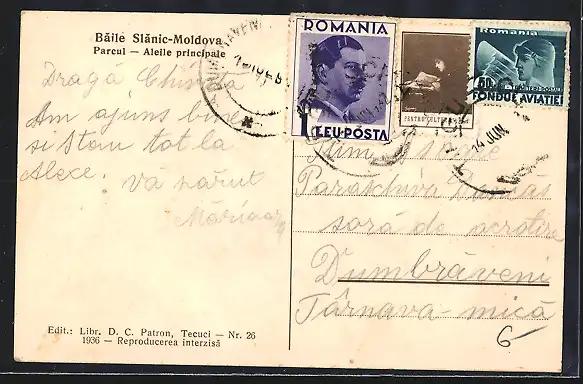 Băile Slănic-Moldova
Parcul — Aleile principale
Dragă
Am ajuns bine
si stau tot la
Alexe. Vă sărut
ROMANIA
1 LEU-POSTA
PENTRU CULTURA
Romania
TIMBRU
FONDUL AVIAȚIEI
14 JUN.
Paraschiva
soră de ocrotire
Dumbrăveni
Târnava-mică
6-
Edit.: Libr. D. C. Patron, Tecuci — Nr. 26
1936 — Reproducerea interzisă